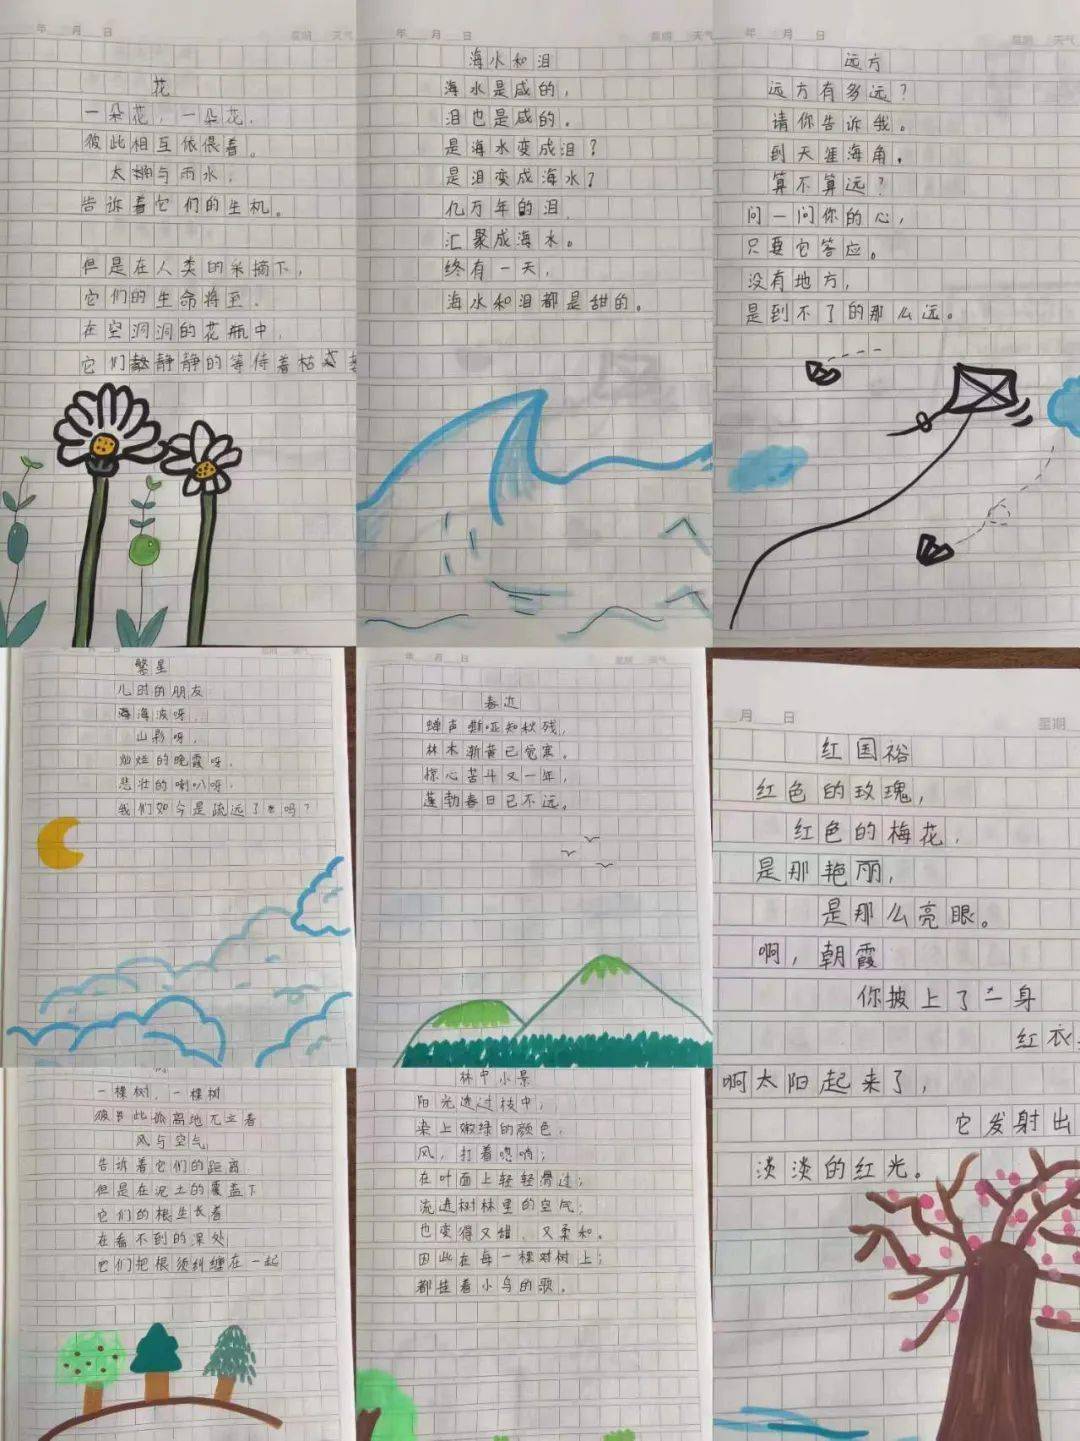 年 月 日 星期 天气
花
一朵花，一朵花，
彼此相互依偎着。
太与雨水，
告诉着它们的生机。
但是在人类的采摘下，
它们的生命将至，
在空洞洞的花瓶中，
它们静静的等待着枯
年 月 日 星期 天气
海水和泪
海水是咸的，
泪也是咸的。
是海水变成泪？
是泪变成海水？
亿万年的泪，
汇聚成海水。
终有一天，
海水和泪都是甜的。
年 月 日 星期 天气
远方
远方有多远？
请你告诉我。
到天涯海角，
算不算远？
问一问你的心，
只要它答应。
没有地方，
是到不了的那么远。
繁星
儿时的朋友
海波呀，
山影呀，
灿烂的晚霞呀，
悲壮的喇叭呀，
我们如今是疏远了吗？
年 月 日 星期 天气
春近
蝉声嘶哑知秋残，
林木渐黄已觉寒。
惊心苦斗又一年，
蓬勃春日已不远。
月 日 星期
红国裕
红色的玫瑰，
红色的梅花，
是那艳丽，
是那么亮眼。
啊，朝霞
你披上了一身
红衣
啊太阳起来了，
它发射出
淡淡的红光。
一棵树，一棵树
彼此孤离地兀立着
风与空气
告诉着它们的距离
但是在泥土的覆盖下
它们的根生长着
在看不到的深处
它们把根须纠缠在一起
林中小景
阳光透过枝中，
染上嫩绿的颜色，
风，打着唿哨；
在叶面上轻轻滑过；
流进树林里的空气；
也变得又甜、又柔和。
因此在每一棵对树上；
都挂着小鸟的歌。